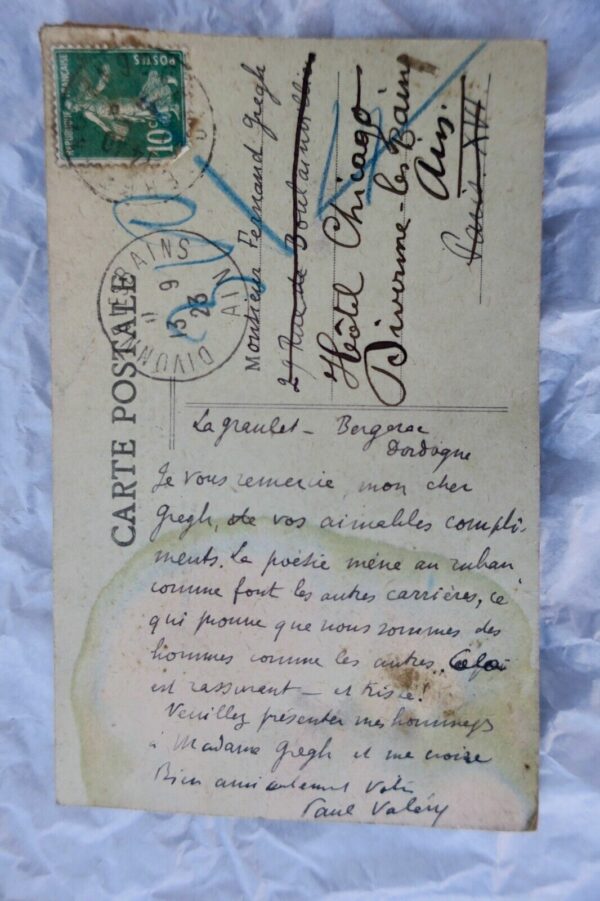 RÉPUBLIQUE FRANÇAISE
POSTES
10c
DIVONNE-LES-BAINS
13 9
23
AIN
CARTE POSTALE
Monsieur Fernand Gregh
29 Rue de Boulainvilliers
Hôtel Chicago
Divonne-les-Bains
Ain.
Paris XVI
Lagraulet - Bergerac
Dordogne
Je vous remercie, mon cher
Gregh, de vos aimables compli-
ments. La poésie mène au ruban
comme font les autres carrières, ce
qui prouve que nous sommes des
hommes comme les autres. Cela
est rassurant - et triste!
Veuillez présenter mes hommages
à Madame Gregh et me croire
Bien amicalement Votre
Paul Valéry